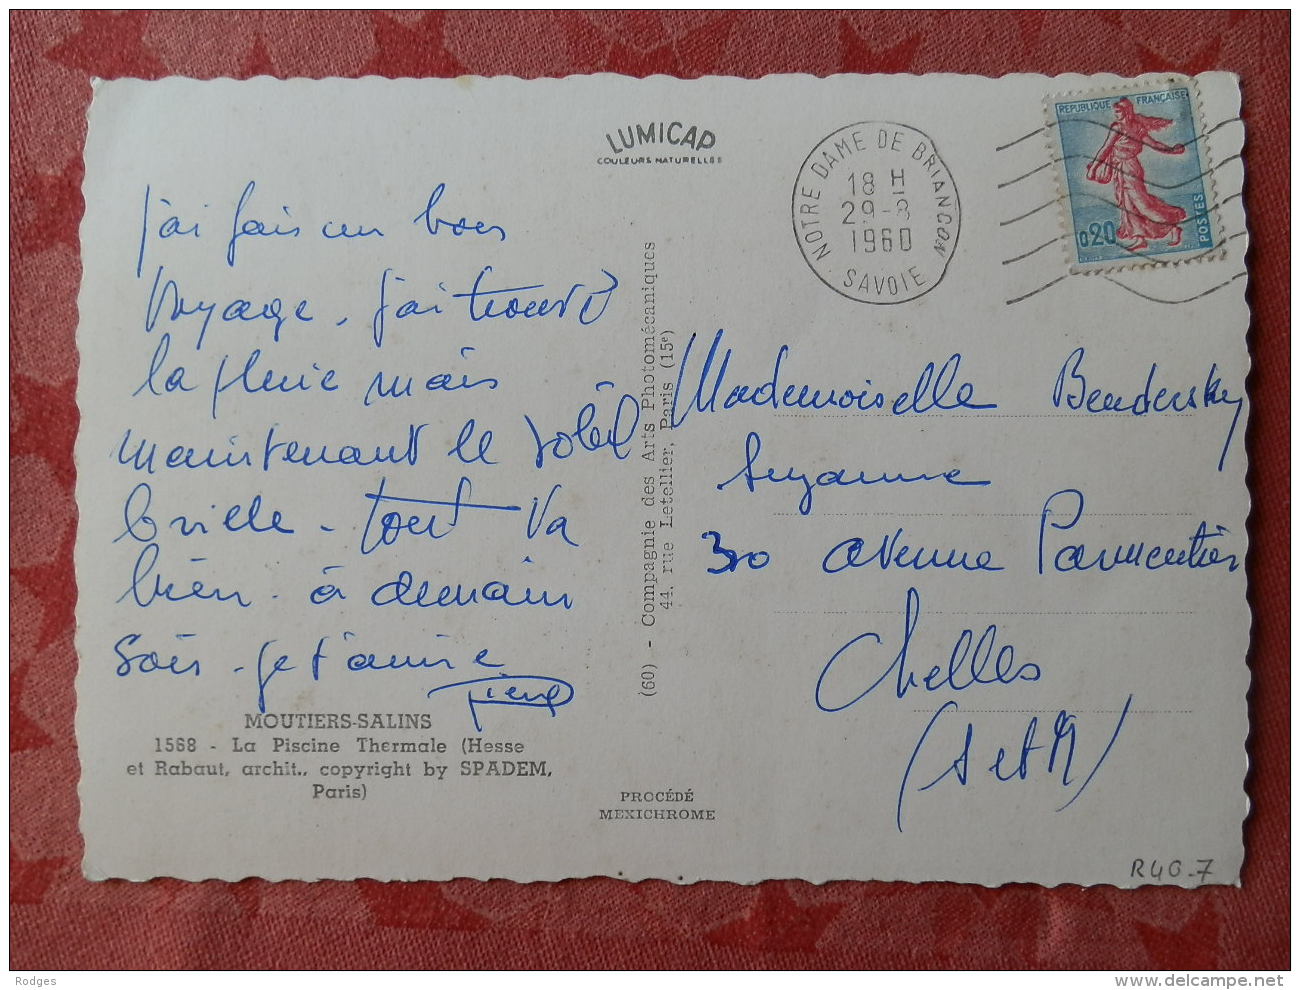 LUMICAP
COULEURS NATURELLES
NOTRE DAME DE BRIANÇON
18 H
29-8
1960
SAVOIE
REPUBLIQUE FRANÇAISE
0,20
POSTES
j'ai fais un bon
voyage. j'ai trouvé
la pluie mais
maintenant le soleil
brille - tout va
bien. à demain
soir. je t'aime
Pierre
Mademoiselle Bendersky
Suzanne
30 avenue Parmentier
Chelles
(Set M)
(60) - Compagnie des Arts Photomécaniques
44, rue Letellier, Paris (15e)
MOUTIERS-SALINS
1568 - La Piscine Thermale (Hesse
et Rabaut, archit., copyright by SPADEM,
Paris)
PROCÉDÉ
MEXICHROME
R40-7
Rodges
www.delcampe.net